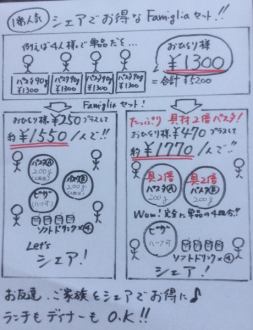 1番人気 シェアでお得なFamigliaセット!!
例えば4人様で単品だと…
パスタ90g ¥1300
パスタ90g ¥1300
パスタ90g ¥1300
パスタ90g ¥1300
おひとり様
¥1300
=合計¥5200
Famigliaセット!
おひとり様¥250プラスして
約¥1550/1人で!!
パスタⒶ
200g
パスタⒷ
200g
ピザー
ハーフ
ソフトドリンク×④
Let's
シェア!
たっぷり 具材2倍パスタ!
おひとり様¥470プラスして
約¥1770/1人で!!
具2倍
パスタⒶ
200g
具2倍
パスタⒷ
200g
Wow!
単品の4皿分!!
ピザー
ハーフ
ソフトドリンク×④
シェア!
お友達、ご家族とシェアでお得に♪
ランチもディナーも O.K!!